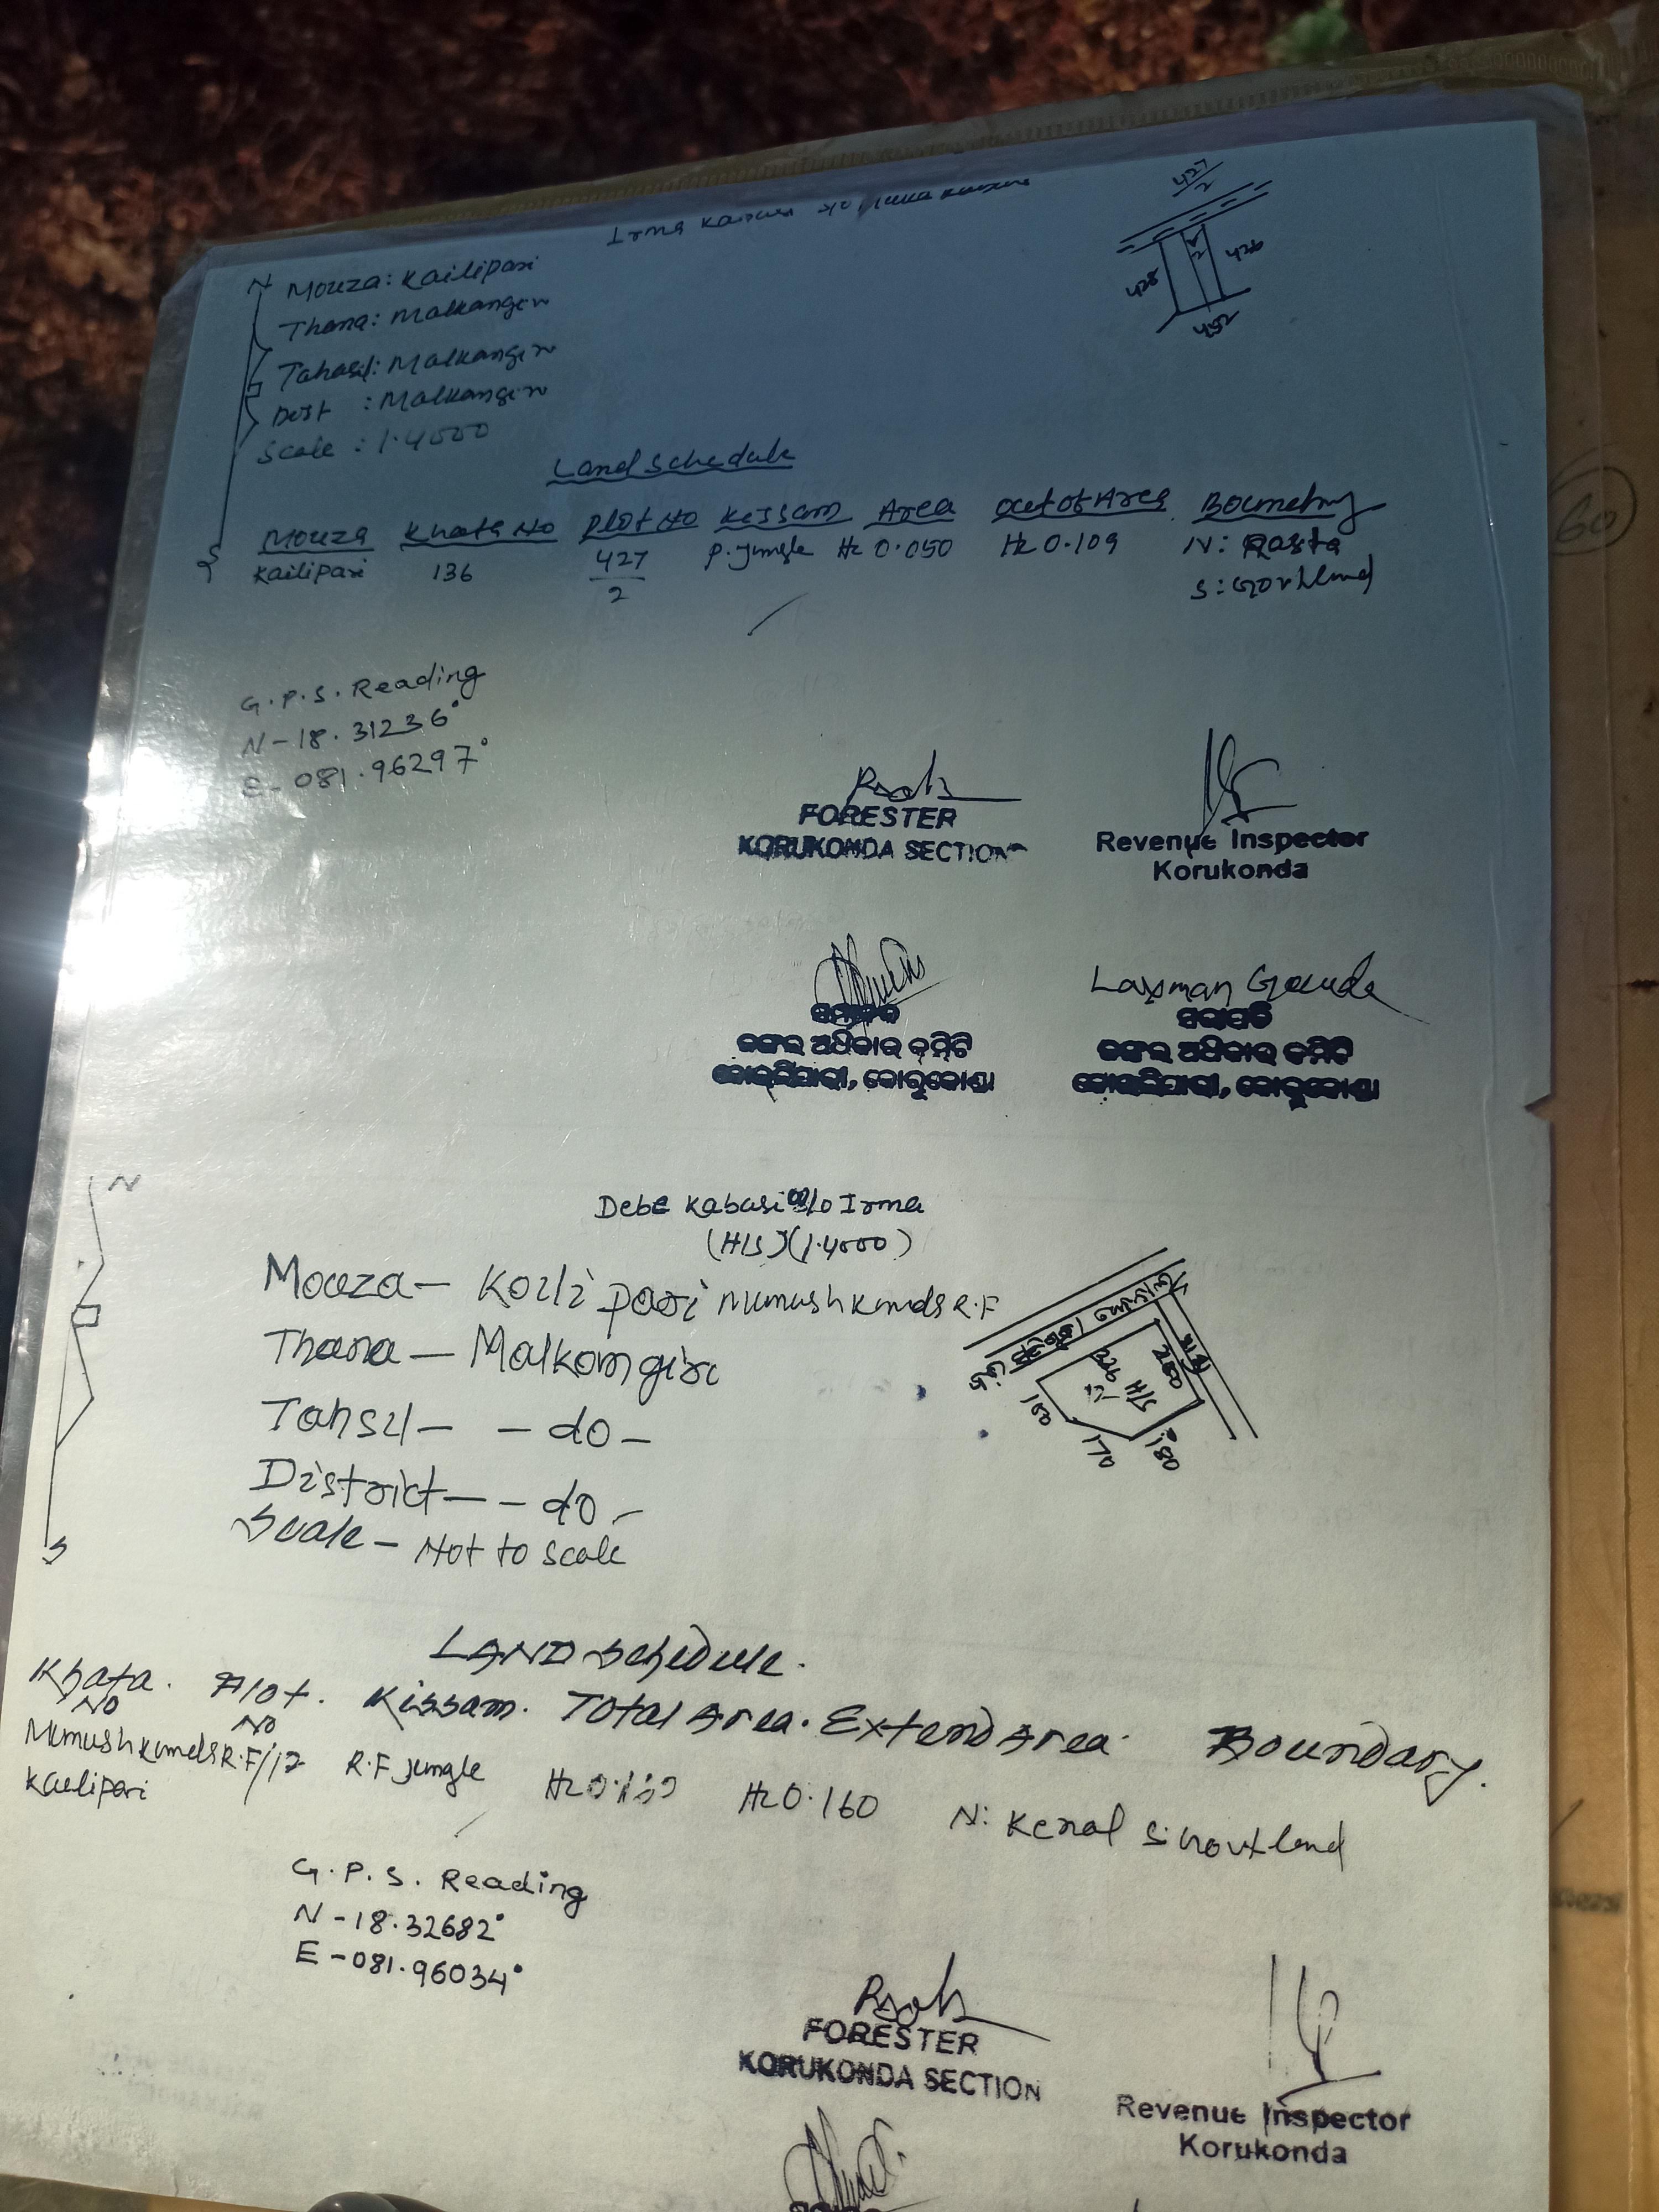 Irma Kabasi
427/2
428
426
Mouza: Kailipari
Thana: Malkangiri
Tahasil: Malkangiri
Dist : Malkangiri
Scale : 1.4000
N
S
Land schedule
Mouza Khata No Plot No Kissam Area Out of Area Boundry
Kailipari 136 427/2 P. Jungle Hc 0.050 Hc 0.109 N: Rasta
S: Govt Land
60
G.P.S. Reading
N-18.31236°
E-081.96297°
FORESTER
KORUKONDA SECTION
Revenue Inspector
Korukonda
ଜଙ୍ଗଲ ଅଧିକାର କମିଟି
କୋଇଲିପାରୀ, କୋରୁକୋଣ୍ଡା
Laxman Gouda
ସଭାପତି
ଜଙ୍ଗଲ ଅଧିକାର କମିଟି
କୋଇଲିପାରୀ, କୋରୁକୋଣ୍ଡା
N
S
Debe Kabasi Irma
(H/S)(1.4000)
Mouza- Koili pari R.F
Thana- Malkangiri
Tahsil- - do -
District- - do -
Scale- Not to scale
200
H/S
150
170
180
LAND Schedule.
Khata No. Plot No. Kissam. Total Area. Extend Area. Boundary.
R.F/12 R.F Jungle Hc 0.160 N: Kenal S: Govt land
Kailipari
G.P.S. Reading
N-18.32682°
E-081.96034°
FORESTER
KORUKONDA SECTION
Revenue Inspector
Korukonda